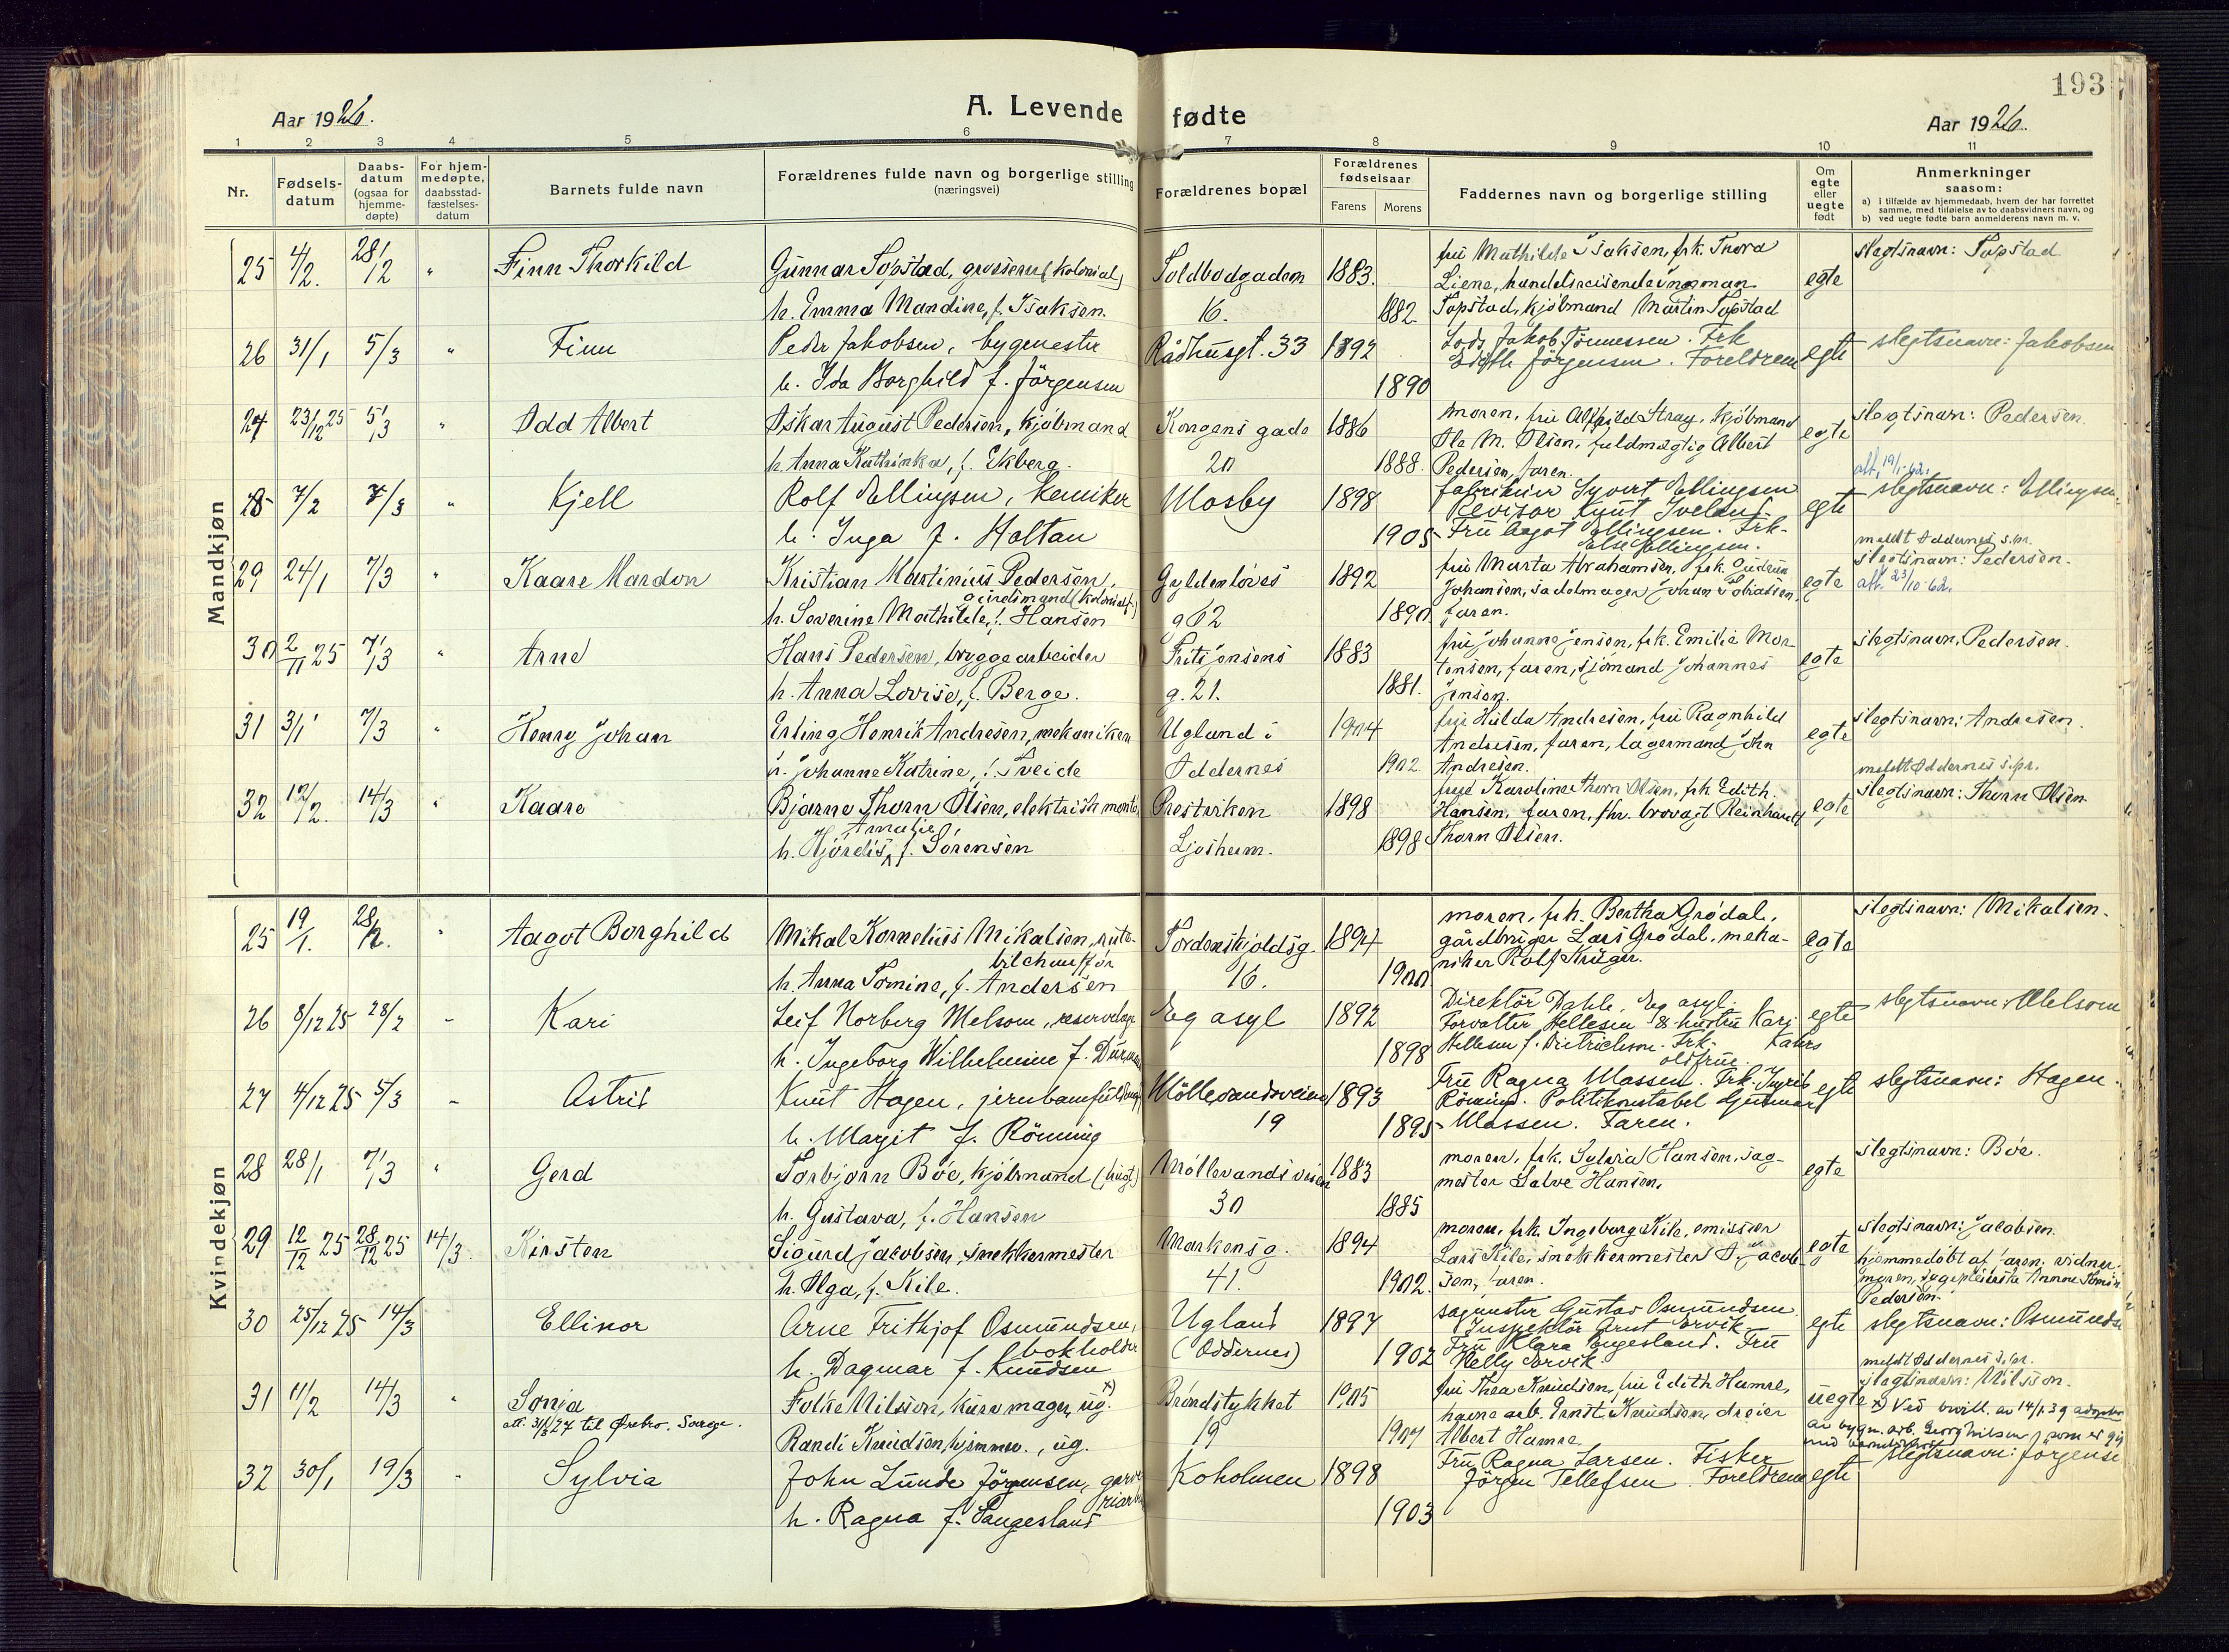 193
Aar 1926.
A. Levende fødte
Aar 1926.
1 2 3 4 5 6 7 8 9 10 11
Nr.
Fødsels-
datum
Daabs-
datum
(ogsaa for
hjemme-
døpte)
For hjem-
medøpte,
daabsstad-
fæstelses-
datum
Barnets fulde navn
Forældrenes fulde navn og borgerlige stilling
(næringsvei)
Forældrenes bopæl
Forældrenes
fødselsaar
Farens Morens
Faddernes navn og borgerlige stilling
Om
egte
eller
uegte
født
Anmerkninger
saasom:
a) i tilfælde av hjemmedaab, hvem der har forrettet
samme, med tilføielse av to daabsvidners navn, og
b) ved uegte fødte barn anmelderens navn m. v.
Mandkjøn
25 4/2. 28/12 " Finn Thorkild
Gunnar Topstad, grosserer (kolonial)
h. Emma Mandine, f. Isaksen.
Toldbodgaden 16. 1883. 1882.
fru Mathilde Isaksen, frk. Thora
Liene, handelsreisende Norman
Topstad, kjøbmand Martin Topstad
egte slegtsnavn: Topstad
26 31/1 5/3 " Finn
Peder Jakobsen, bygmester
h. Ida Borghild f. Jörgensen
Rådhusgt. 33 1892 1890
Lods Jakob Tönnessen. Frk
Edith Jörgensen. Foreldrene
egte slegtsnavn: Jakobsen
27 23/12 25 5/3 " Odd Albert
Oskar August Pedersen, kjöbmand
h. Anna Kathinka, f. Ekberg.
Kongens gade 20 1886 1888.
moren, fru Alfhild Stray, kjöbmand
Ole M. Olsen, fuldmægtig Albert
Pedersen, faren.
egte slegtsnavn: Pedersen.
att. 19/1-62.
28 7/2 7/3 " Kjell
Rolf Ellingsen, kemiker
h. Inga f. Holtan
Mosby 1898 1905
fabrikeier Syvert Ellingsen
Revisor Knut Iveland
Fru Aagot Ellingsen. Frk.
Else Ellingsen.
egte slegtsnavn: Ellingsen
meldt Oddernes s.pr.
29 24/1 7/3 " Kaare Mardon
Kristian Martinius Pedersen,
h. Severine Mathilde, f. Hansen
Gyldenløves g 62 1892 1890
fru Marta Abrahamsen, frk. Gudrun
Johansen, sadelmager Johan Tobiassen,
faren.
egte slegtsnavn: Pedersen.
att. 23/10-62.
30 2/11 25 7/3 " Arne
Hans Pedersen, bryggearbeider
h. Anna Lovise, f. Berge.
Frits Jensens g. 21. 1883 1881.
fru Johanne Jensen, frk. Emilie Mor-
tensen, faren, sjömand Johannes
Jensen.
egte slegtsnavn, Pedersen.
31 3/1 7/3 " Henry Johan
Erling Henrik Andresen, mekaniker
h. Johanne Katrine, f. Tveide
Ugland i Oddernes 1904 1902.
fru Hulda Andresen, fru Ragnhild
Andresen, faren, lagermand John
Andresen.
egte slegtsnavn: Andresen.
meldt Oddernes s.pr.
32 12/2. 14/3 " Kaare
Bjarne Thorn Olsen, elektrisk montör
h. Hjördis Amalie, f. Sörensen
Prestviken Ljosheim. 1898 1898
frue Karoline Thorn Olsen, frk Edith
Hansen, faren, fhv. brovagt Reinhardt
Thorn Olsen.
egte slegtsnavn: Thorn Olsen
Kvindekjøn
25 19/1. 28/2. " Aagot Borghild
Mikal Kornelius Mikalsen, rute-
bilchauffør
h. Anna Tomine, f. Andersen
Tordenskjoldsg. 16. 1894 1900
moren, frk. Bertha Grödal,
gårdbruger Lars Grödal, meka-
niker Rolf Krüger.
egte slegtsnavn: Mikalsen.
26 8/12 25 28/2 " Kari
Leif Norberg Melsom, reservelæge
h. Ingeborg Wilhelmine f.
Eg asyl 1892 1898
Direktör Dahle, Eg asyl.
Forvalter Hellesen & hustru Kari
Hellesen f. Dietrichson. Frk.
oldfrue.
egte slegtsnavn: Melsom
27 4/12 25 5/3 " Astrid
Knut Hagen, jernbanefuldm.
h. Margit f. Rönning
Möllevandsveien 19 1893 1895
Fru Ragna Klassen. Frk. Ingrid
Rönning. Politikonstabel Gutmar
Klassen. Faren.
egte slegtsnavn: Hagen.
28 28/1 7/3 " Gerd
Torbjörn Böe, kjöbmand
h. Gustava, f. Hansen
Möllevandsveien 30 1883 1885
moren, frk. Sylvia Hansen, sag-
mester Salve Hansen.
egte slegtsnavn: Böe.
29 12/12 25 28/12 25 14/3. Kirsten
Sigurd Jacobsen, snekkermester
h. Olga, f. Kile.
Markensg. 41. 1894 1902.
moren, frk. Ingeborg Kile, emissær
Lars Kile, snekkermester A. Jacob-
sen, faren.
egte slegtsnavn: Jacobsen.
hjemmedöbt af faren, vidner:
moren, sygepleierske Anna Tomine
Pedersen.
30 25/12 25 14/3 Ellinor
Arne Frithjof Osmundsen,
bokholder
h. Dagmar f. Knudsen
Ugland (Oddernes) 1897 1902
sagmester Gustav Osmundsen
Inspektör Arnt Ervik
Fru Klara Engesland. Fru
Nelly Ervik
egte slegtsnavn: Osmunds
meldt Oddernes s.pr.
31 11/2 14/3 " Sonja
att. 31/3 27 til Örebro. Sverge.
Folke Nilsson, kurvmager, ug. x)
Randi Knudsen, hjemmev., ug.
Bröndstykket 19 1905 1907
fru Thea Knudsen, fru Edith Hamre,
havnearb. Ernst Knudsen, dreier
Albert Hamre.
uegte slegtsnavn: Nilsson.
x) Ved bevill. av 14/1 39 adoptert
av bygn. arb. Georg Nilsen, som er gift
med barnets mor.
32 30/1 19/3 " Sylvia
John Lunde Jörgensen,
h. Ragna f. Saugesland
Koholmen 1898 1903
Fru Ragna Larsen. Fisker
Jörgen Tellefsen. Foreldrene
egte slegtsnavn: Jörgense